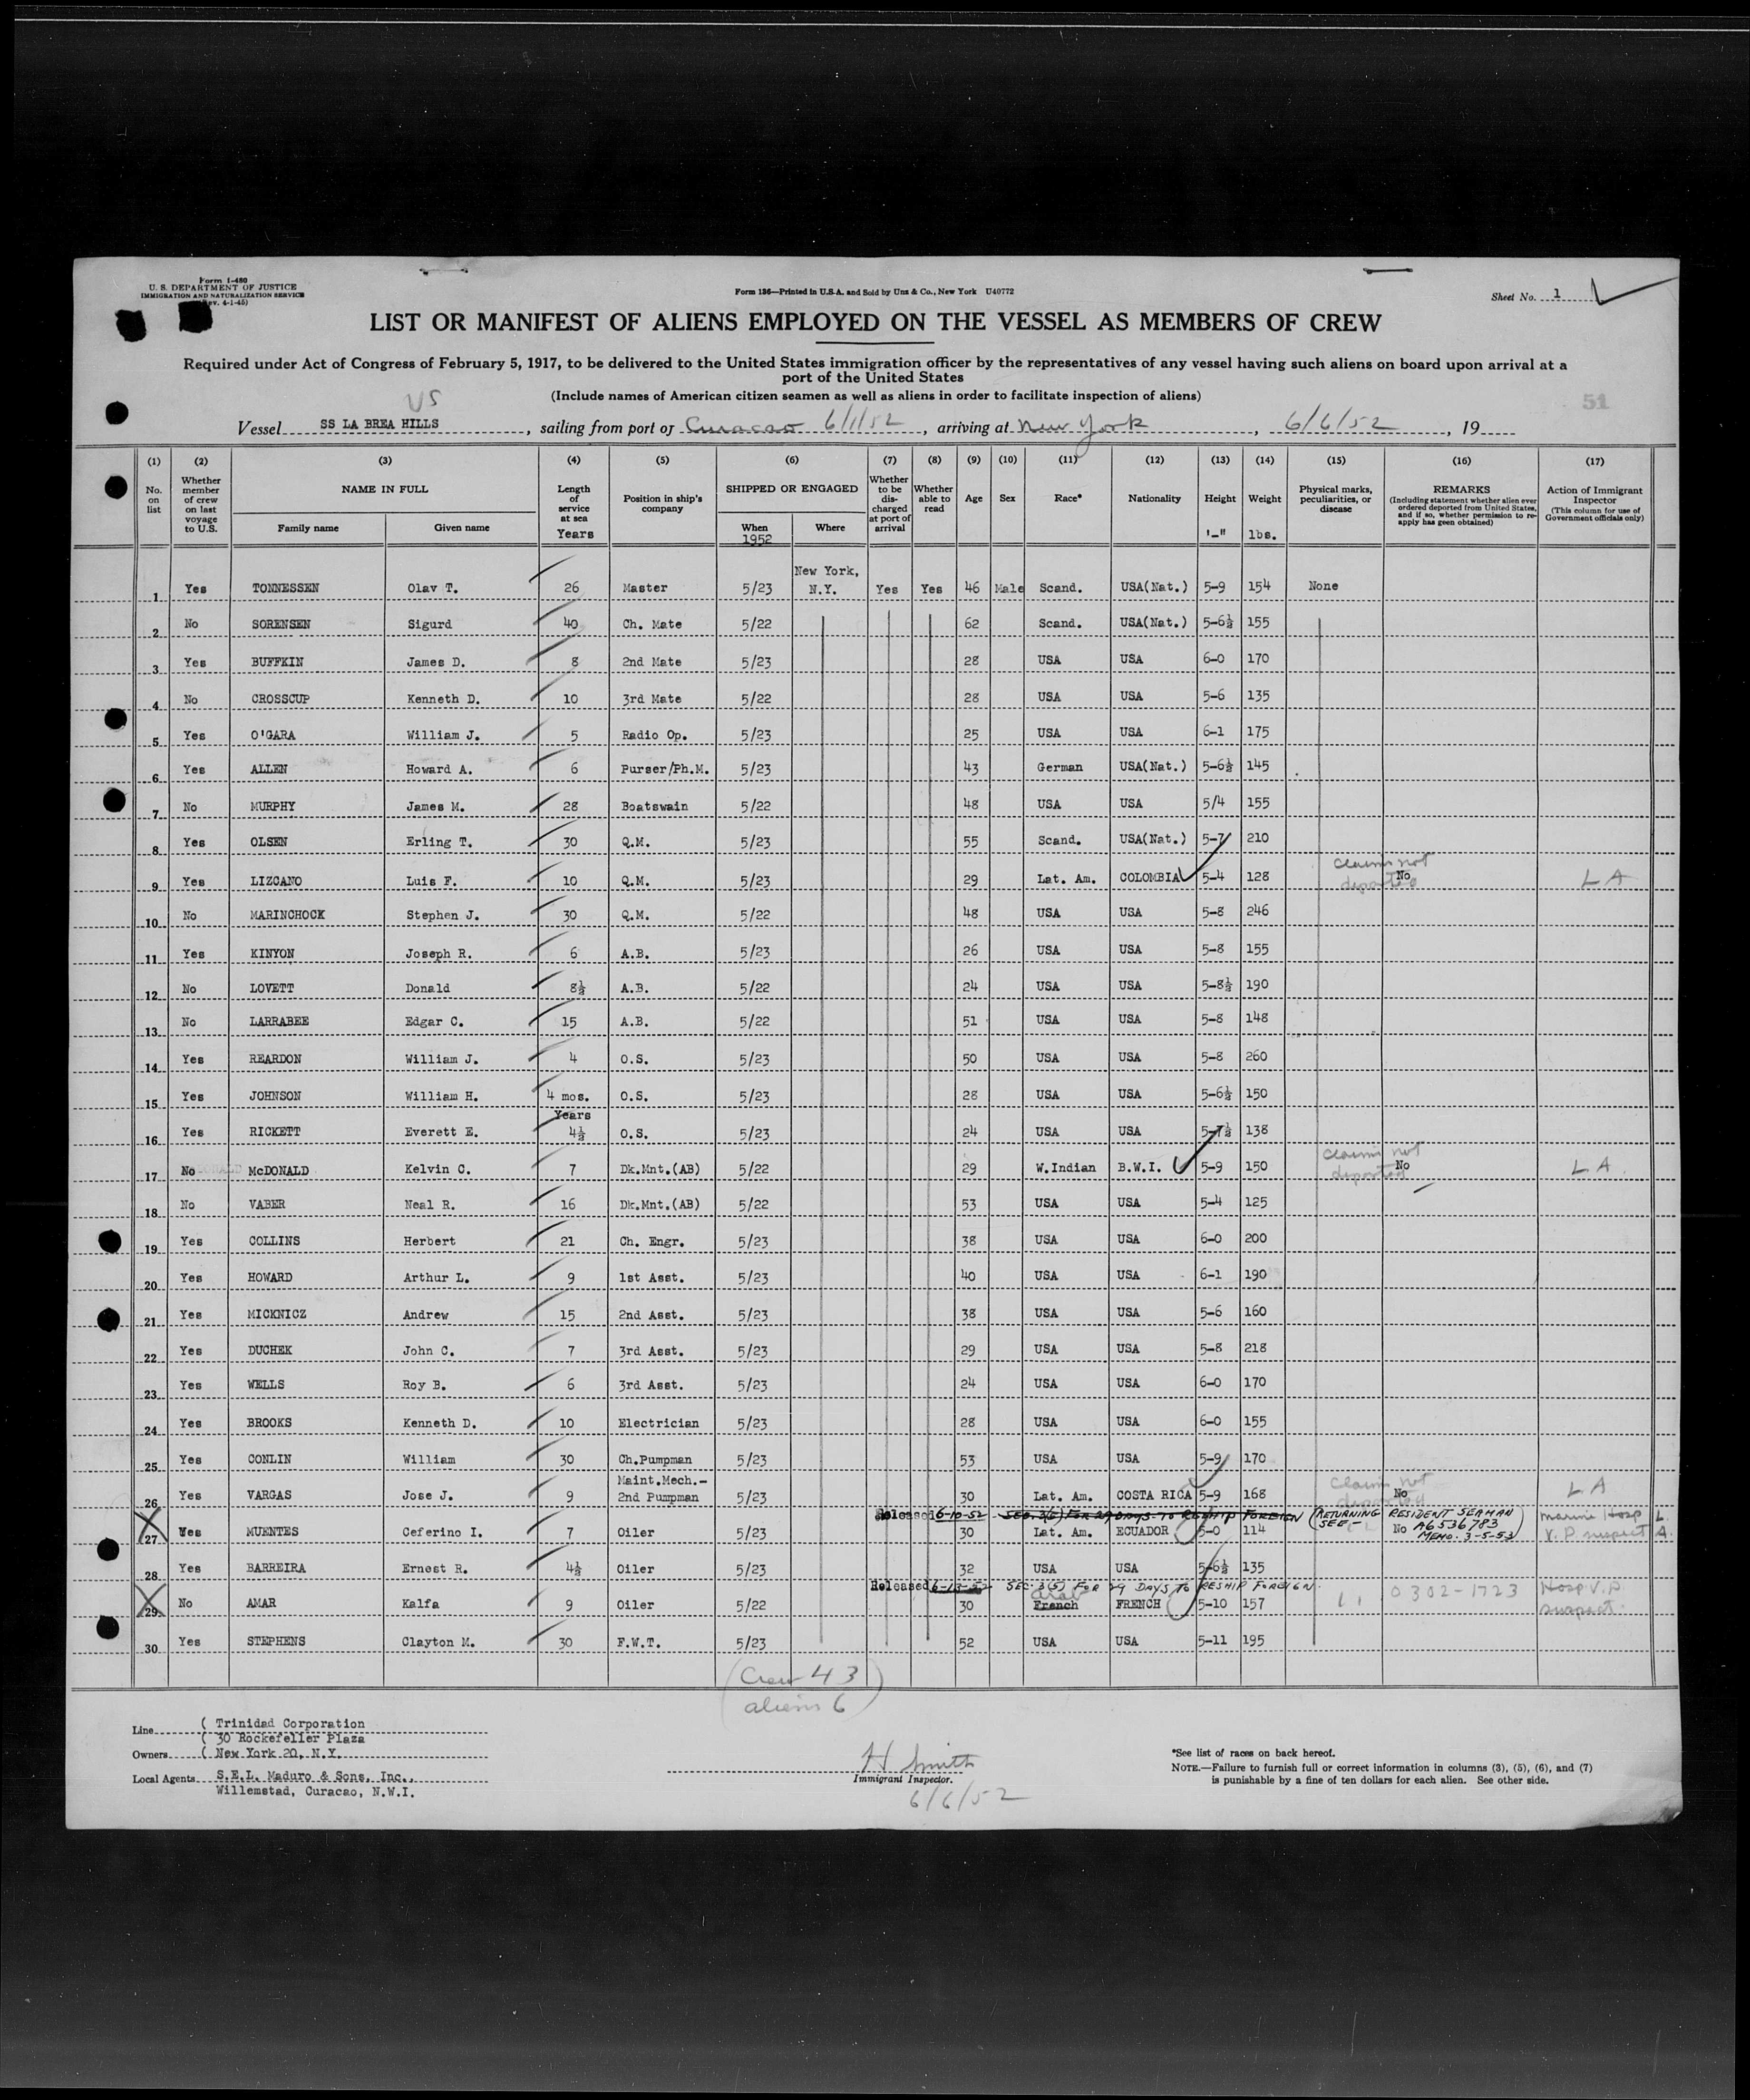 Form I-480
U. S. DEPARTMENT OF JUSTICE
IMMIGRATION AND NATURALIZATION SERVICE
(Rev. 4-1-45)
Form 136—Printed in U.S.A. and Sold by Unz & Co., New York U40772
Sheet No. 1
LIST OR MANIFEST OF ALIENS EMPLOYED ON THE VESSEL AS MEMBERS OF CREW
Required under Act of Congress of February 5, 1917, to be delivered to the United States immigration officer by the representatives of any vessel having such aliens on board upon arrival at a
port of the United States
(Include names of American citizen seamen as well as aliens in order to facilitate inspection of aliens)
US
51
Vessel SS LA BREA HILLS, sailing from port of Curacao 6/1/52, arriving at New York, 6/6/52, 19
(1) (2) (3) (4) (5) (6) (7) (8) (9) (10) (11) (12) (13) (14) (15) (16) (17)
No. on list
Whether member of crew on last voyage to U.S.
NAME IN FULL
Family name Given name
Length of service at sea
Years
Position in ship's company
SHIPPED OR ENGAGED
When 1952 Where
Whether to be discharged at port of arrival
Whether able to read
Age Sex Race* Nationality Height Weight
'-" lbs.
Physical marks, peculiarities, or disease
REMARKS
(Including statement whether alien ever ordered deported from United States, and if so, whether permission to reapply has geen obtained)
Action of Immigrant Inspector
(This column for use of Government officials only)
1 Yes TONNESSEN Olav T. 26 Master 5/23 New York, N.Y. Yes Yes 46 Male Scand. USA(Nat.) 5-9 154 None
2 No SORENSEN Sigurd 40 Ch. Mate 5/22 62 Scand. USA(Nat.) 5-6½ 155
3 Yes BUFFKIN James D. 8 2nd Mate 5/23 28 USA USA 6-0 170
4 No CROSSCUP Kenneth D. 10 3rd Mate 5/22 28 USA USA 5-6 135
5 Yes O'GARA William J. 5 Radio Op. 5/23 25 USA USA 6-1 175
6 Yes ALLEN Howard A. 6 Purser/Ph.M. 5/23 43 German USA(Nat.) 5-6½ 145
7 No MURPHY James M. 28 Boatswain 5/22 48 USA USA 5/4 155
8 Yes OLSEN Erling T. 30 Q.M. 5/23 55 Scand. USA(Nat.) 5-7 210
9 Yes LIZCANO Luis F. 10 Q.M. 5/23 29 Lat. Am. COLOMBIA 5-4 128 claims not deported No LA
10 No MARINCHOCK Stephen J. 30 Q.M. 5/22 48 USA USA 5-8 246
11 Yes KINYON Joseph R. 6 A.B. 5/23 26 USA USA 5-8 155
12 No LOVETT Donald 8½ A.B. 5/22 24 USA USA 5-8½ 190
13 No LARRABEE Edgar C. 15 A.B. 5/22 51 USA USA 5-8 148
14 Yes REARDON William J. 4 O.S. 5/23 50 USA USA 5-8 260
15 Yes JOHNSON William H. 4 mos. O.S. 5/23 28 USA USA 5-6½ 150
Years
16 Yes RICKETT Everett E. 4½ O.S. 5/23 24 USA USA 5-7½ 138
17 No McDONALD Kelvin C. 7 Dk.Mnt.(AB) 5/22 29 W.Indian B.W.I. 5-9 150 claims not deported No LA
18 No VABER Neal R. 16 Dk.Mnt.(AB) 5/22 53 USA USA 5-4 125
19 Yes COLLINS Herbert 21 Ch. Engr. 5/23 38 USA USA 6-0 200
20 Yes HOWARD Arthur L. 9 1st Asst. 5/23 40 USA USA 6-1 190
21 Yes MICKNICZ Andrew 15 2nd Asst. 5/23 38 USA USA 5-6 160
22 Yes DUCHEK John C. 7 3rd Asst. 5/23 29 USA USA 5-8 218
23 Yes WELLS Roy B. 6 3rd Asst. 5/23 24 USA USA 6-0 170
24 Yes BROOKS Kenneth D. 10 Electrician 5/23 28 USA USA 6-0 155
25 Yes CONLIN William 30 Ch.Pumpman 5/23 53 USA USA 5-9 170
26 Yes VARGAS Jose J. 9 Maint.Mech.- 2nd Pumpman 5/23 30 Lat. Am. COSTA RICA 5-9 168 claims not deported No LA
Released 6-10-52 SEC. 3(5) FOR 29 DAYS TO RESHIP FOREIGN (RETURNING RESIDENT SEAMAN
SEE - A6536783 MEMO. 3-5-53)
27 Yes MUENTES Ceferino I. 7 Oiler 5/23 30 Lat. Am. ECUADOR 5-0 114 No Marine Hosp V.D. suspect L. A.
28 Yes BARREIRA Ernest R. 4½ Oiler 5/23 32 USA USA 5-6½ 135
Released 6-13-52 SEC. 3(5) FOR 29 DAYS TO RESHIP FOREIGN.
29 No AMAR Kalfa 9 Oiler 5/22 30 Arab French FRENCH 5-10 157 0302-1723 Hosp V.D. suspect
30 Yes STEPHENS Clayton M. 30 F.W.T. 5/23 52 USA USA 5-11 195
(Crew 43
aliens 6)
Line ( Trinidad Corporation
( 30 Rockefeller Plaza
Owners ( New York 20, N.Y.
Local Agents S.E.L. Maduro & Sons, Inc.,
Willemstad, Curacao, N.W.I.
H Smith
Immigrant Inspector.
6/6/52
*See list of races on back hereof.
NOTE.—Failure to furnish full or correct information in columns (3), (5), (6), and (7)
is punishable by a fine of ten dollars for each alien. See other side.